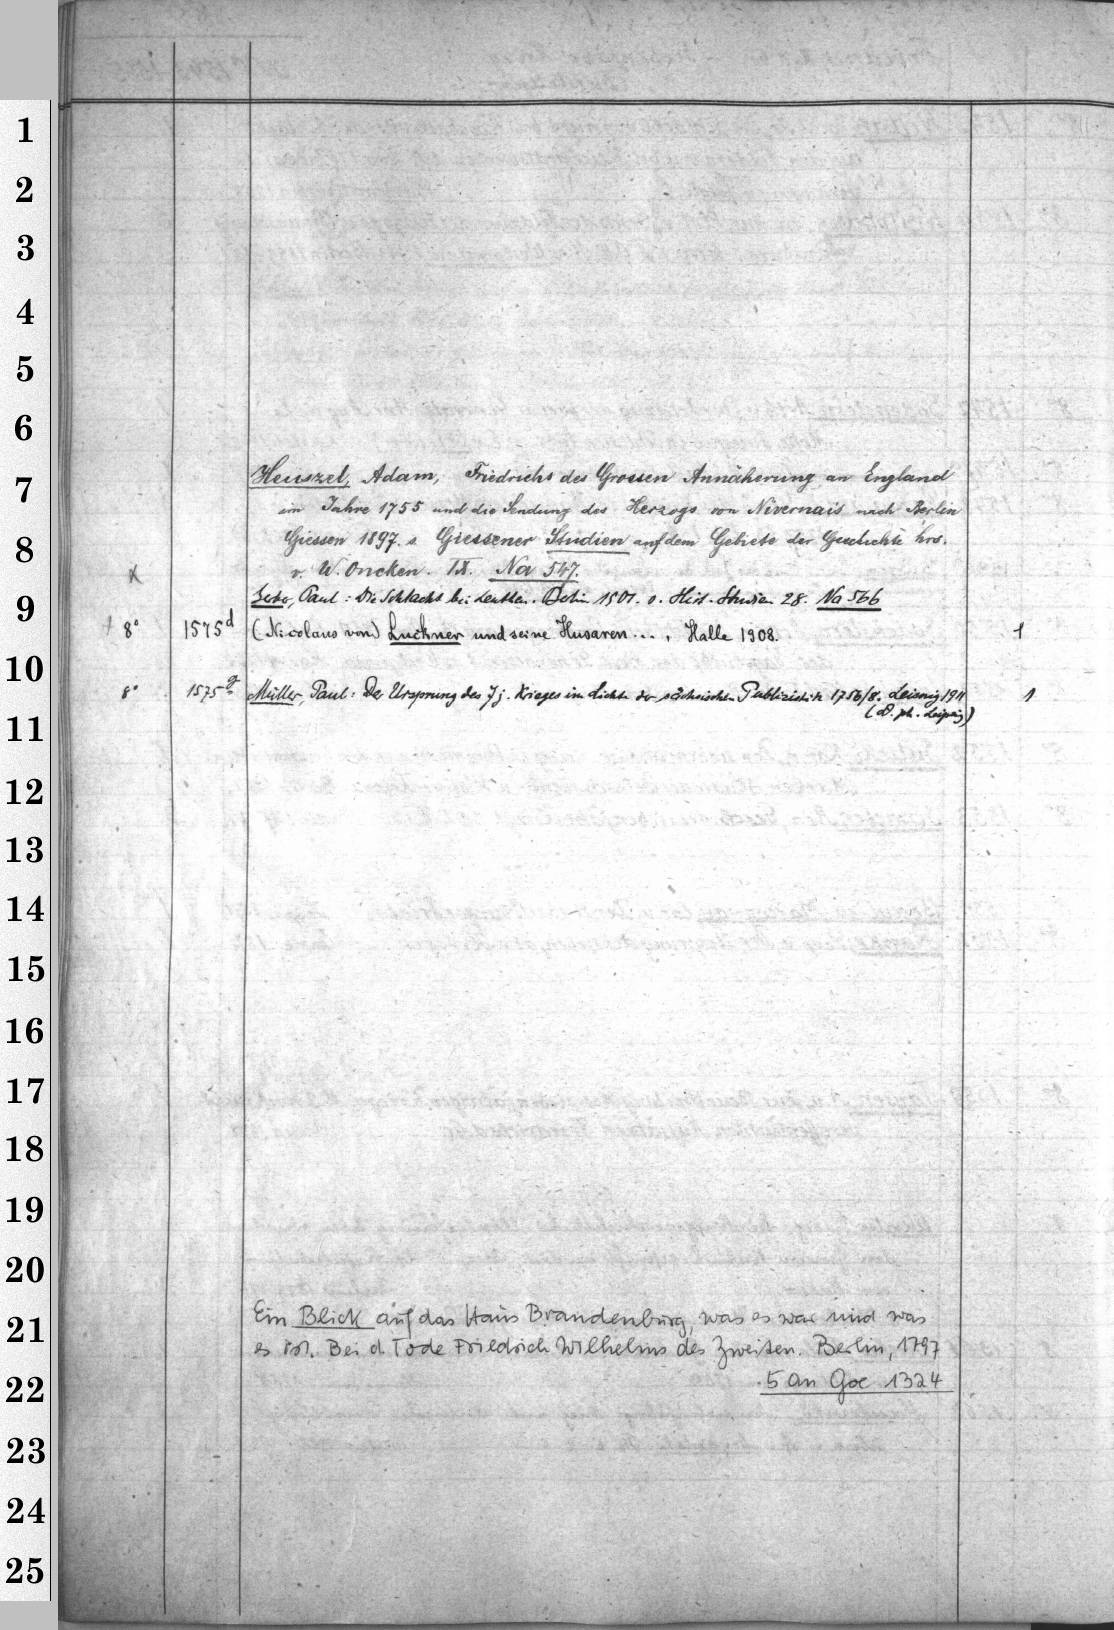 1
2
3
4
5
6
Heuszel, Adam, Friedrichs des Grossen Annäherung an England
7
im Jahre 1755 und die Sendung des Herzogs von Nivernais nach Berlin
8
Giessen 1897. s Giessener Studien auf dem Gebiete der Geschichte hrs.
v. W. Oncken. IX. Na 547.
9
Paul: Die Schlacht bei Leuthen. Berlin 1901. s. Hist. Studien 28. Na 566
8° 1575d (Nicolaus von) Luckner und seine Husaren..., Halle 1908. 1
10
8° 1575g Müller, Paul: Der Ursprung des 7j. Krieges im Lichte der sächsischen Publizistik 1756/8. Leisnig 1911 1
(D. ph. Leipzig)
11
12
13
14
15
16
17
18
19
20
Ein Blick auf das Haus Brandenburg, was es war und was
21
es ist. Bei d. Tode Friedrich Wilhelms des Zweiten. Berlin, 1797
22
5 an Goe 1324
23
24
25